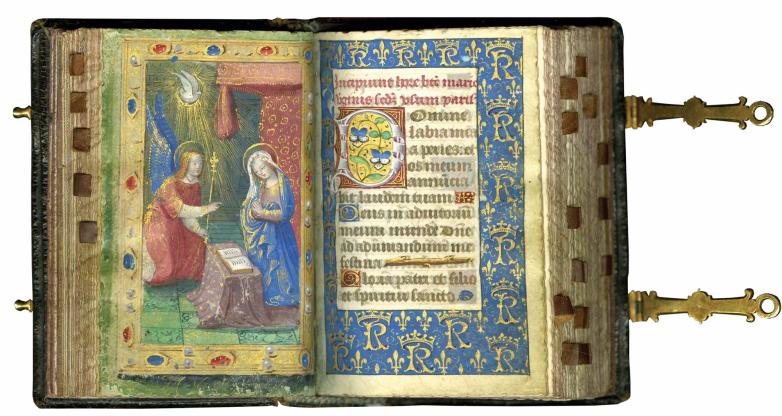 Incipiunt hore bte marie
virginis scdm usum paris
Domine
labia mea
aperies: et
os meum
annucia
bit laudem tuam
Deus in adiutoriu
meum intende Dne
ad adiuvandum me
festina
Gloria patri et filio
et spiritui sancto